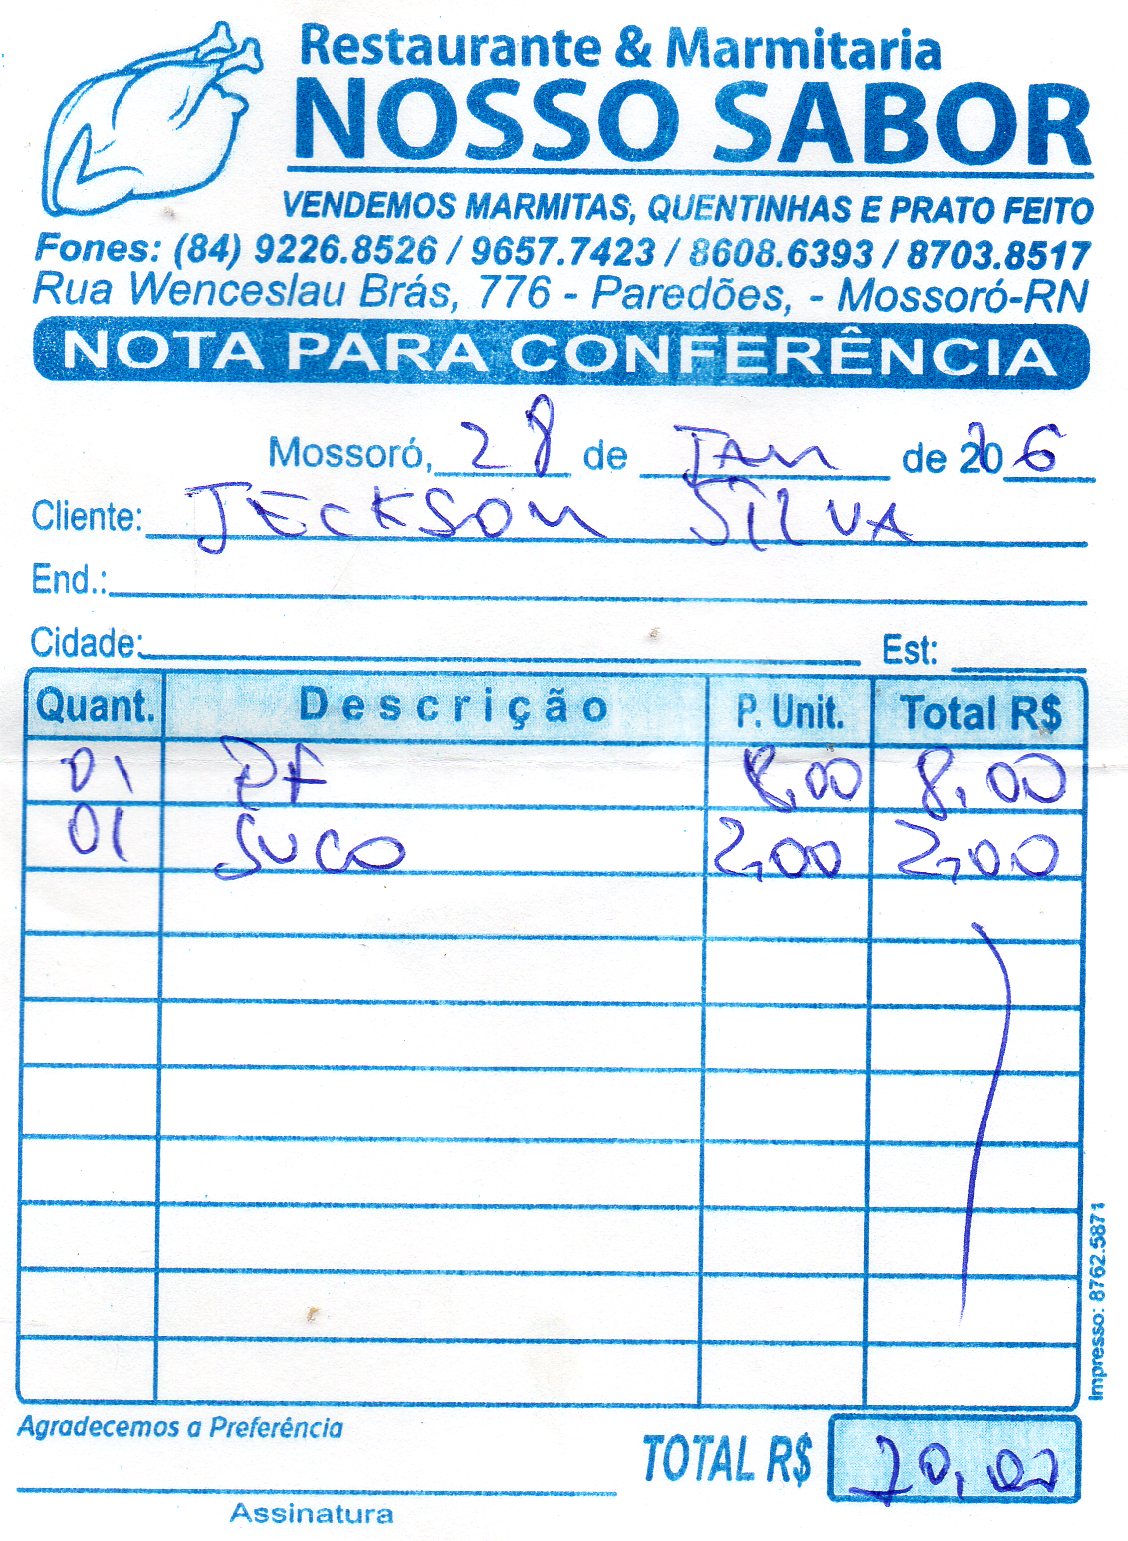 Restaurante & Marmitaria
NOSSO SABOR
VENDEMOS MARMITAS, QUENTINHAS E PRATO FEITO
Fones: (84) 9226.8526 / 9657.7423 / 8608.6393 / 8703.8517
Rua Wenceslau Brás, 776 - Paredões, - Mossoró-RN
NOTA PARA CONFERÊNCIA
Mossoró, 28 de JAN de 2016
Cliente: JECKSON SILVA
End.:
Cidade: Est:
Quant. Descrição P. Unit. Total R$
01 PF 8,00 8,00
01 SUCO 2,00 2,00
Impresso: 8762.5871
Agradecemos a Preferência
TOTAL R$ 10,00
Assinatura